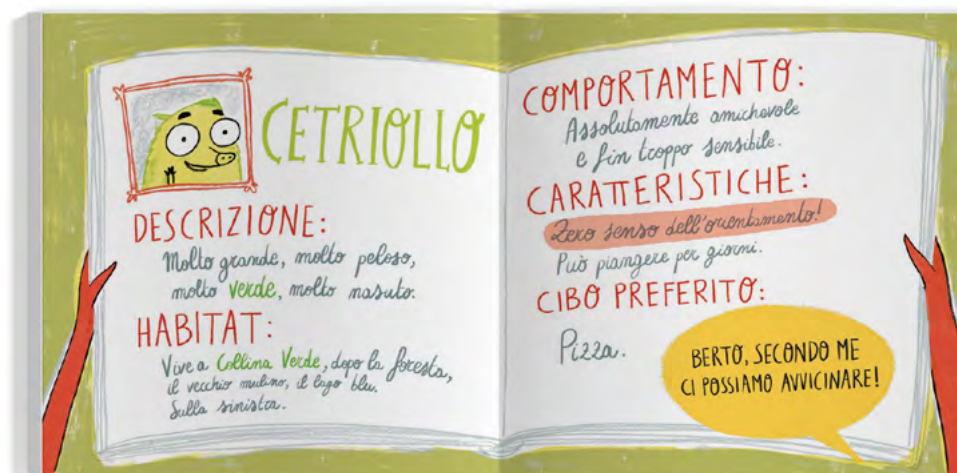 CETRIOLLO
DESCRIZIONE:
Molto grande, molto peloso,
molto verde, molto nasuto.
HABITAT:
Vive a Collina Verde, dopo la foresta,
il vecchio mulino, il lago blu.
Sulla sinistra.
COMPORTAMENTO:
Assolutamente amichevole
e fin troppo sensibile.
CARATTERISTICHE:
Zero senso dell'orientamento!
Può piangere per giorni.
CIBO PREFERITO:
Pizza.
BERTO, SECONDO ME
CI POSSIAMO AVVICINARE!